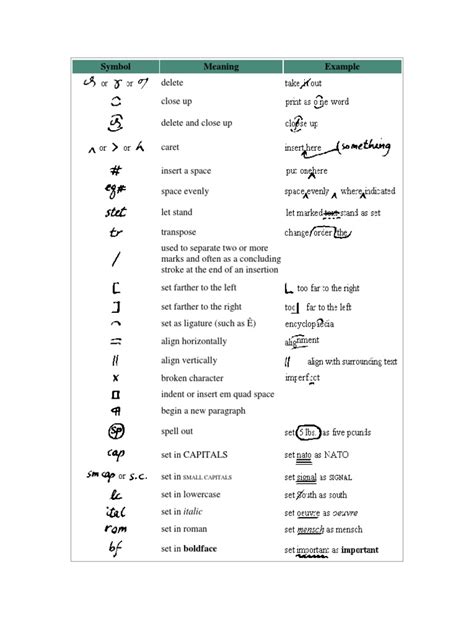 Symbol Meaning Example
or or delete take it out
close up print as one word
delete and close up close up
or > or caret insert here (something
# insert a space put onehere
eq# space evenly space evenly where indicated
stet let stand let marked text stand as set
tr transpose change order the
used to separate two or more
/ marks and often as a concluding
stroke at the end of an insertion
[ set farther to the left too far to the right
] set farther to the right too far to the left
set as ligature (such as Ê) encyclopaedia
= align horizontally alignment
|| align vertically || align with surrounding text
x broken character imperfect
indent or insert em quad space
¶ begin a new paragraph
sp spell out set 5 lbs. as five pounds
cap set in CAPITALS set nato as NATO
sm cap or s.c. set in SMALL CAPITALS set signal as SIGNAL
lc set in lowercase set South as south
ital set in italic set oeuvre as oeuvre
rom set in roman set mensch as mensch
bf set in boldface set important as important